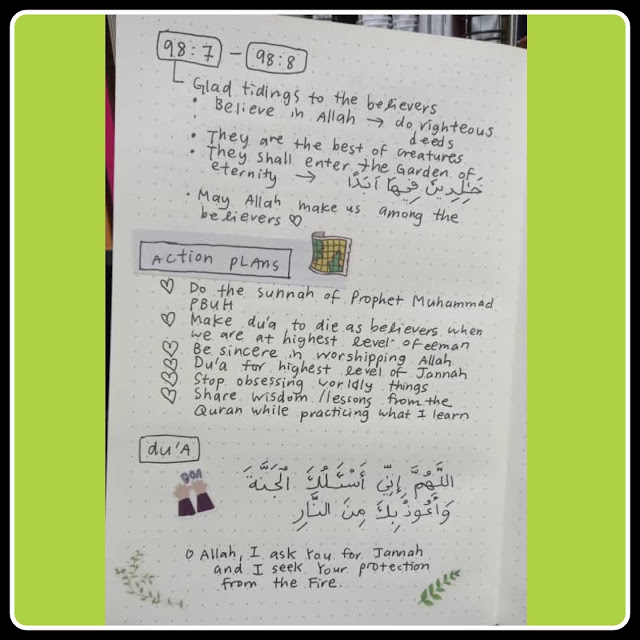 98:7 - 98:8
Glad tidings to the believers
• Believe in Allah → do righteous
deeds
• They are the best of creatures
• They shall enter the Garden of
eternity → خٰلِدِينَ فِيهَا أَبَدًا
• May Allah make us among the
believers ♡
ACTION PLANS
♡ Do the sunnah of Prophet Muhammad
PBUH
♡ Make du'a to die as believers when
we are at highest level of eeman
♡ Be sincere in worshipping Allah
♡ Du'a for highest level of Jannah
♡ Stop obsessing worldly things
♡ Share wisdom / lessons from the
Quran while practicing what I learn
du'A
DOA
اللَّهُمَّ إِنِّي أَسْئَلُكَ الْجَنَّةَ
وَأَعُوذُ بِكَ مِنَ النَّارِ
O Allah, I ask You for Jannah
and I seek Your protection
from the Fire.